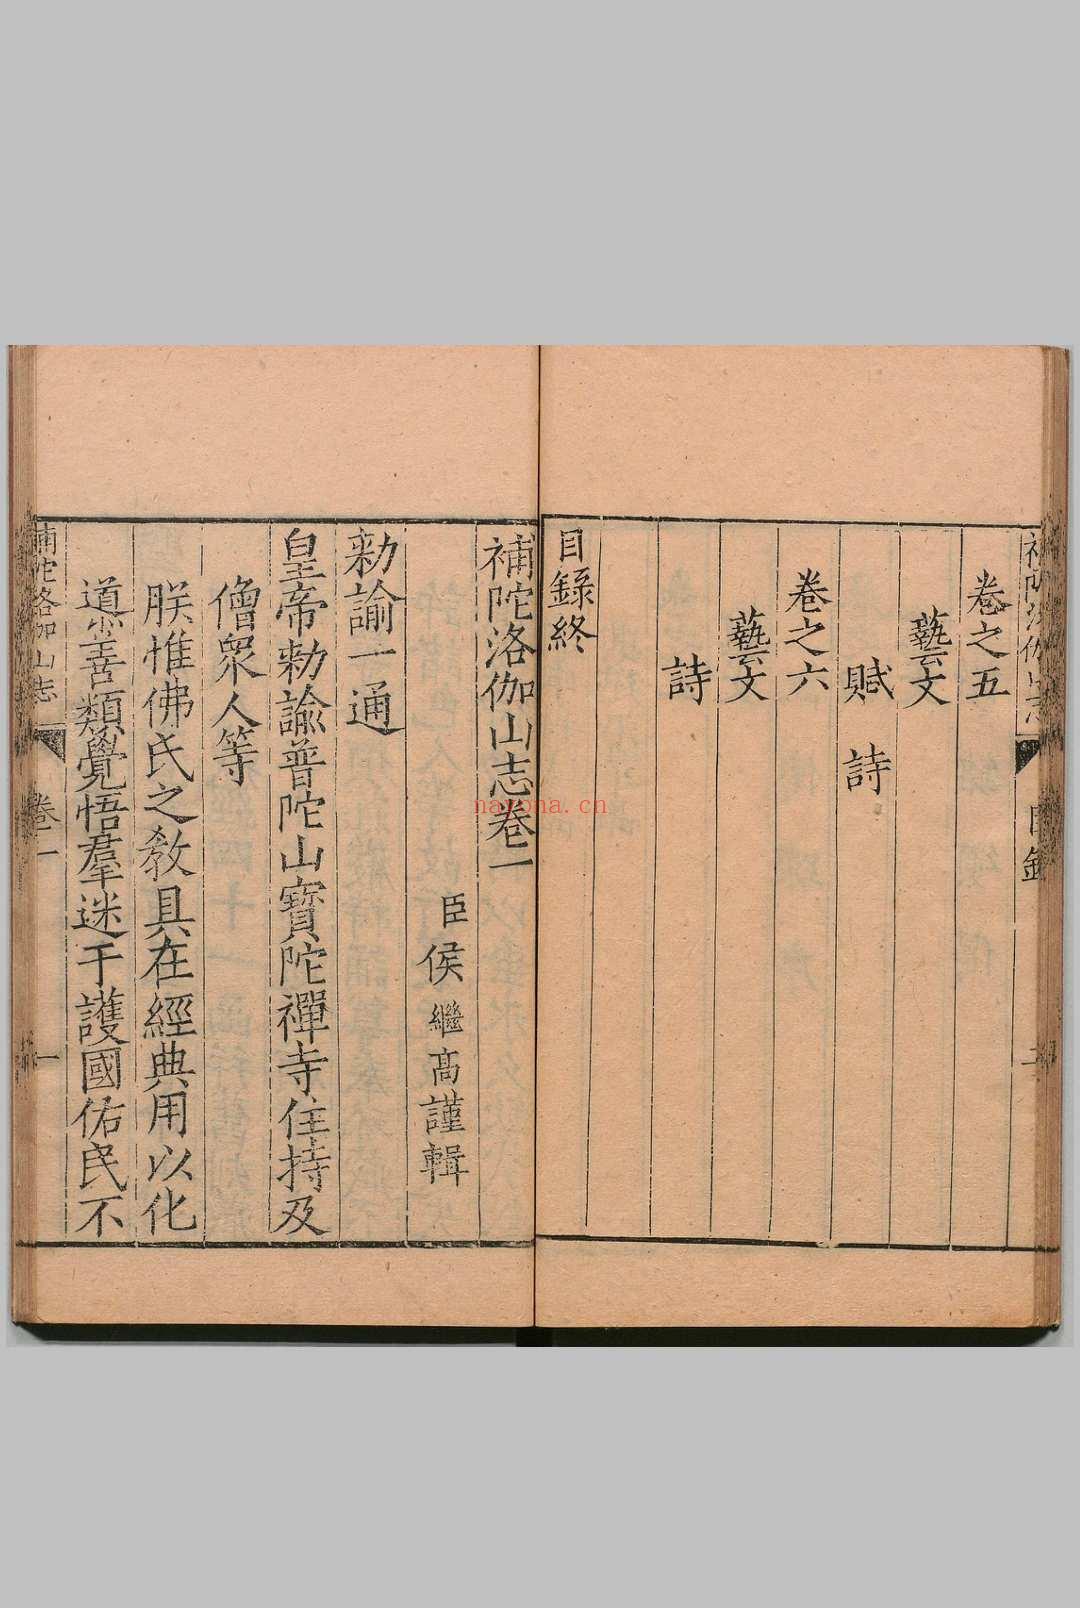 卷之五
藝文
賦 詩
卷之六
藝文
詩
目錄終
補陀洛伽山志卷一
臣侯繼高謹輯
勑諭一通
皇帝勑諭普陀山寶陀禪寺住持及
僧衆人等
朕惟佛氏之敎具在經典用以化
導善類覺悟羣迷于護國佑民不
補陀洛伽山志 卷一 一
nayona.cn